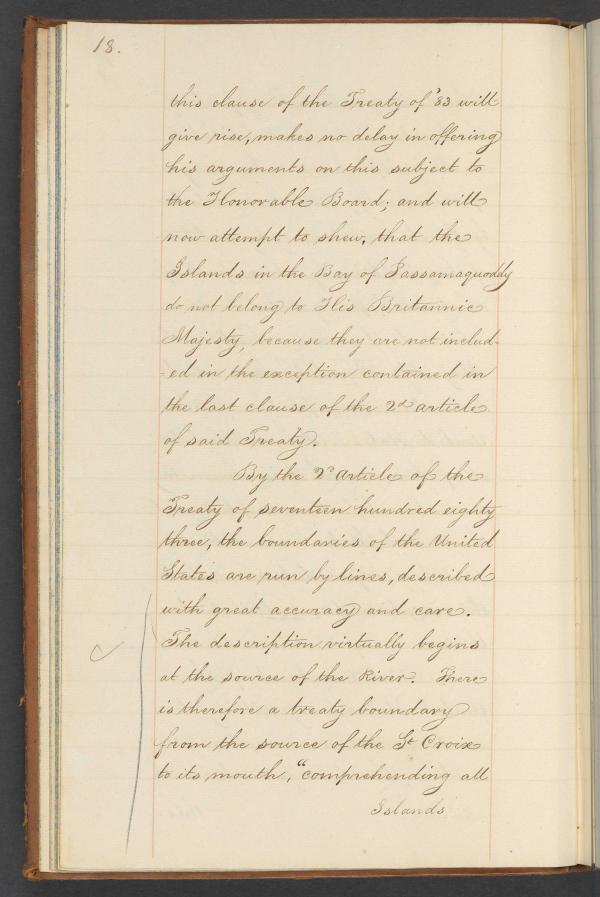 18.
this clause of the Treaty of '83 will
give rise, makes no delay in offering
his arguments on this subject to
the Honorable Board; and will
now attempt to shew, that the
Islands in the Bay of Passamaquoddy
do not belong to His Britannic
Majesty, because they are not includ-
-ed in the exception contained in
the last clause of the 2d article
of said Treaty.
By the 2d article of the
Treaty of seventeen hundred eighty
three, the boundaries of the United
States are run by lines, described
with great accuracy and care.
The description virtually begins
at the source of the River. There
is therefore a treaty boundary
from the source of the St Croix
to its mouth, "comprehending all
Islands